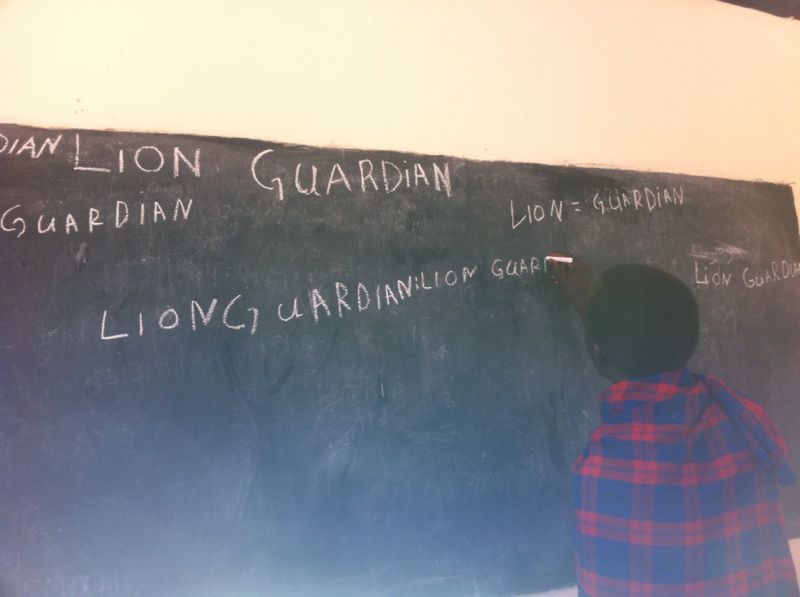 DIAN LION GUARDIAN
GUARDIAN
LION = GUARDIAN
LION GUARDIAN:LION GUAR
LION GUARDIAN